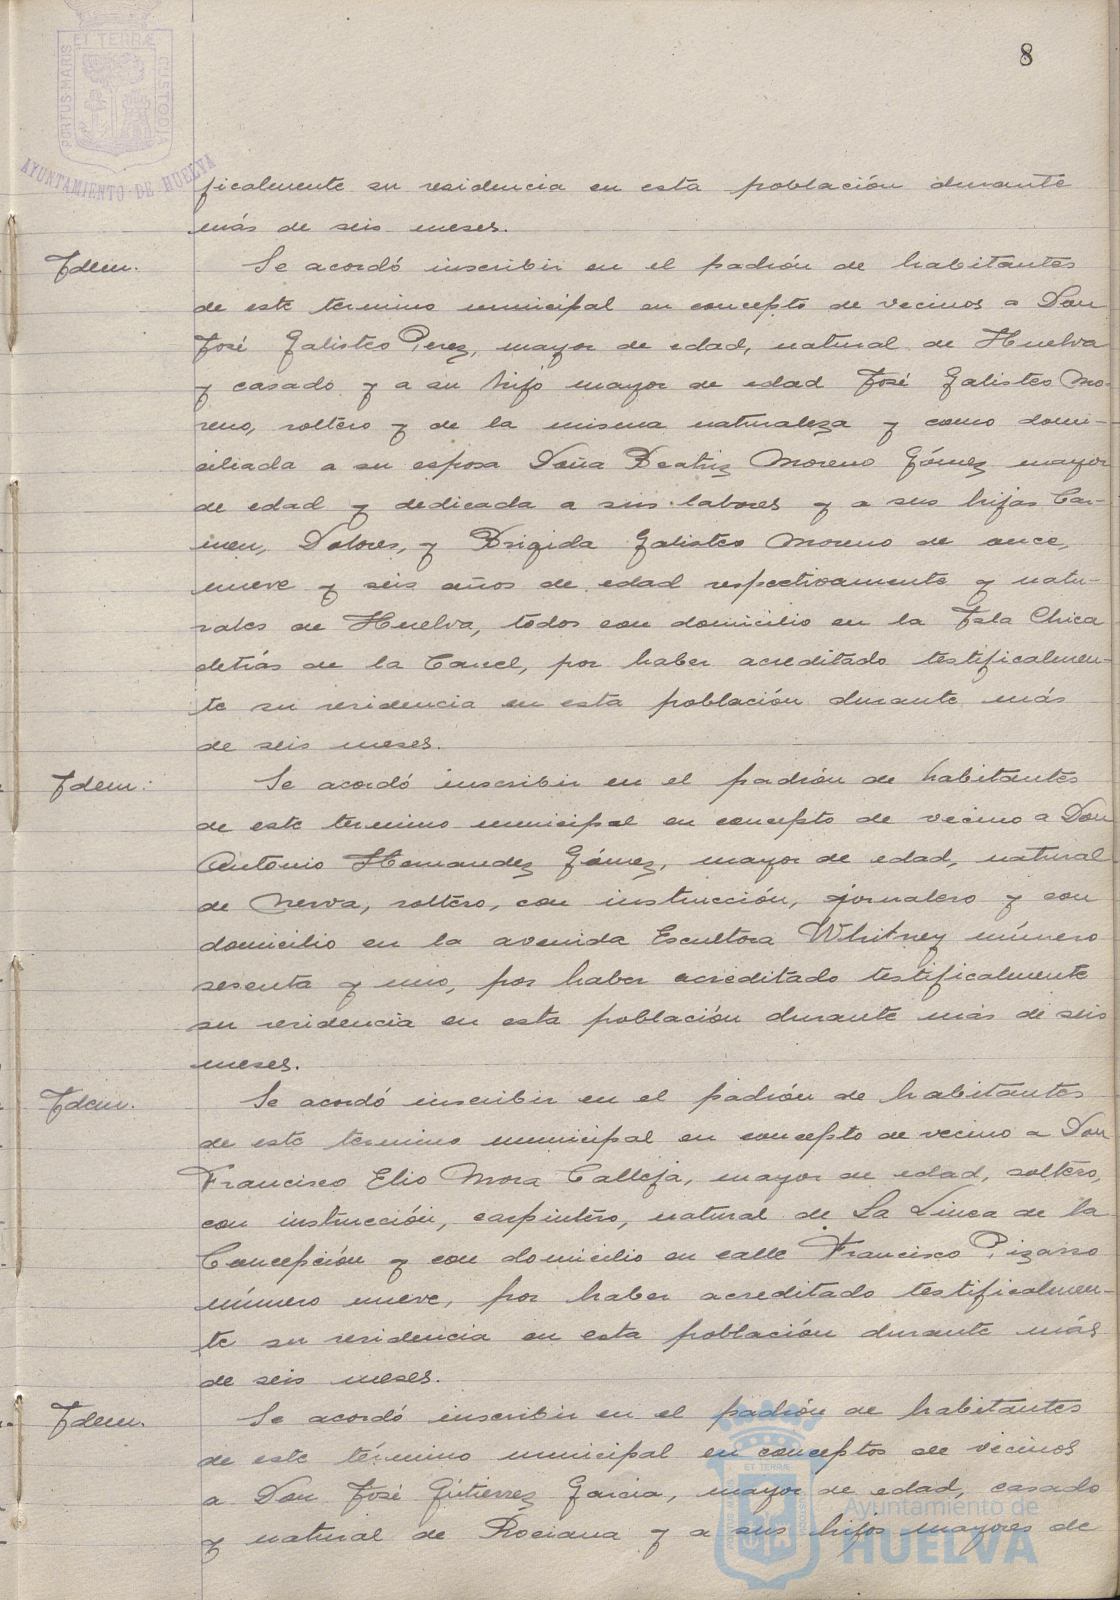 8
PORTUS MARIS ET TERRÆ CUSTODIA
AYUNTAMIENTO DE HUELVA
ficalmente su residencia en esta población durante
más de seis meses.
Idem.
Se acordó inscribir en el padrón de habitantes
de este termino municipal en concepto de vecinos a Don
José Galisteo Perez, mayor de edad, natural de Huelva
y casado y a su hijo mayor de edad José Galisteo Mo-
reno, soltero y de la misma naturaleza y como domi-
ciliada a su esposa Doña Beatriz Moreno Gómez mayor
de edad y dedicada a sus labores y a sus hijas Car-
men, Dolores, y Brigida Galisteo Moreno de once,
nueve y seis años de edad respectivamente y natu-
rales de Huelva, todos con domicilio en la Isla Chica
detrás de la Carcel, por haber acreditado testificalmen-
te su residencia en esta población durante más
de seis meses.
Idem:
Se acordó inscribir en el padrón de habitantes
de este termino municipal en concepto de vecino a Don
Antonio Hernandez Gómez, mayor de edad, natural
de Nerva, soltero, con instrucción, jornalero y con
domicilio en la avenida Escultora Whitney número
sesenta y uno, por haber acreditado testificalmente
su residencia en esta población durante más de seis
meses.
Idem.
Se acordó inscribir en el padrón de habitantes
de este termino municipal en concepto de vecino a Don
Francisco Elio Mora Calleja, mayor de edad, soltero,
con instrucción, carpintero, natural de La Linea de la
Concepción y con domicilio en calle Francisco Pizarro
número nueve, por haber acreditado testificalmen-
te su residencia en esta población durante más
de seis meses.
Idem.
Se acordó inscribir en el padrón de habitantes
de este término municipal en conceptos de vecinos
a Don José Gutierrez Garcia, mayor de edad, casado
y natural de Rociana y a sus hijos mayores de
Ayuntamiento de
HUELVA